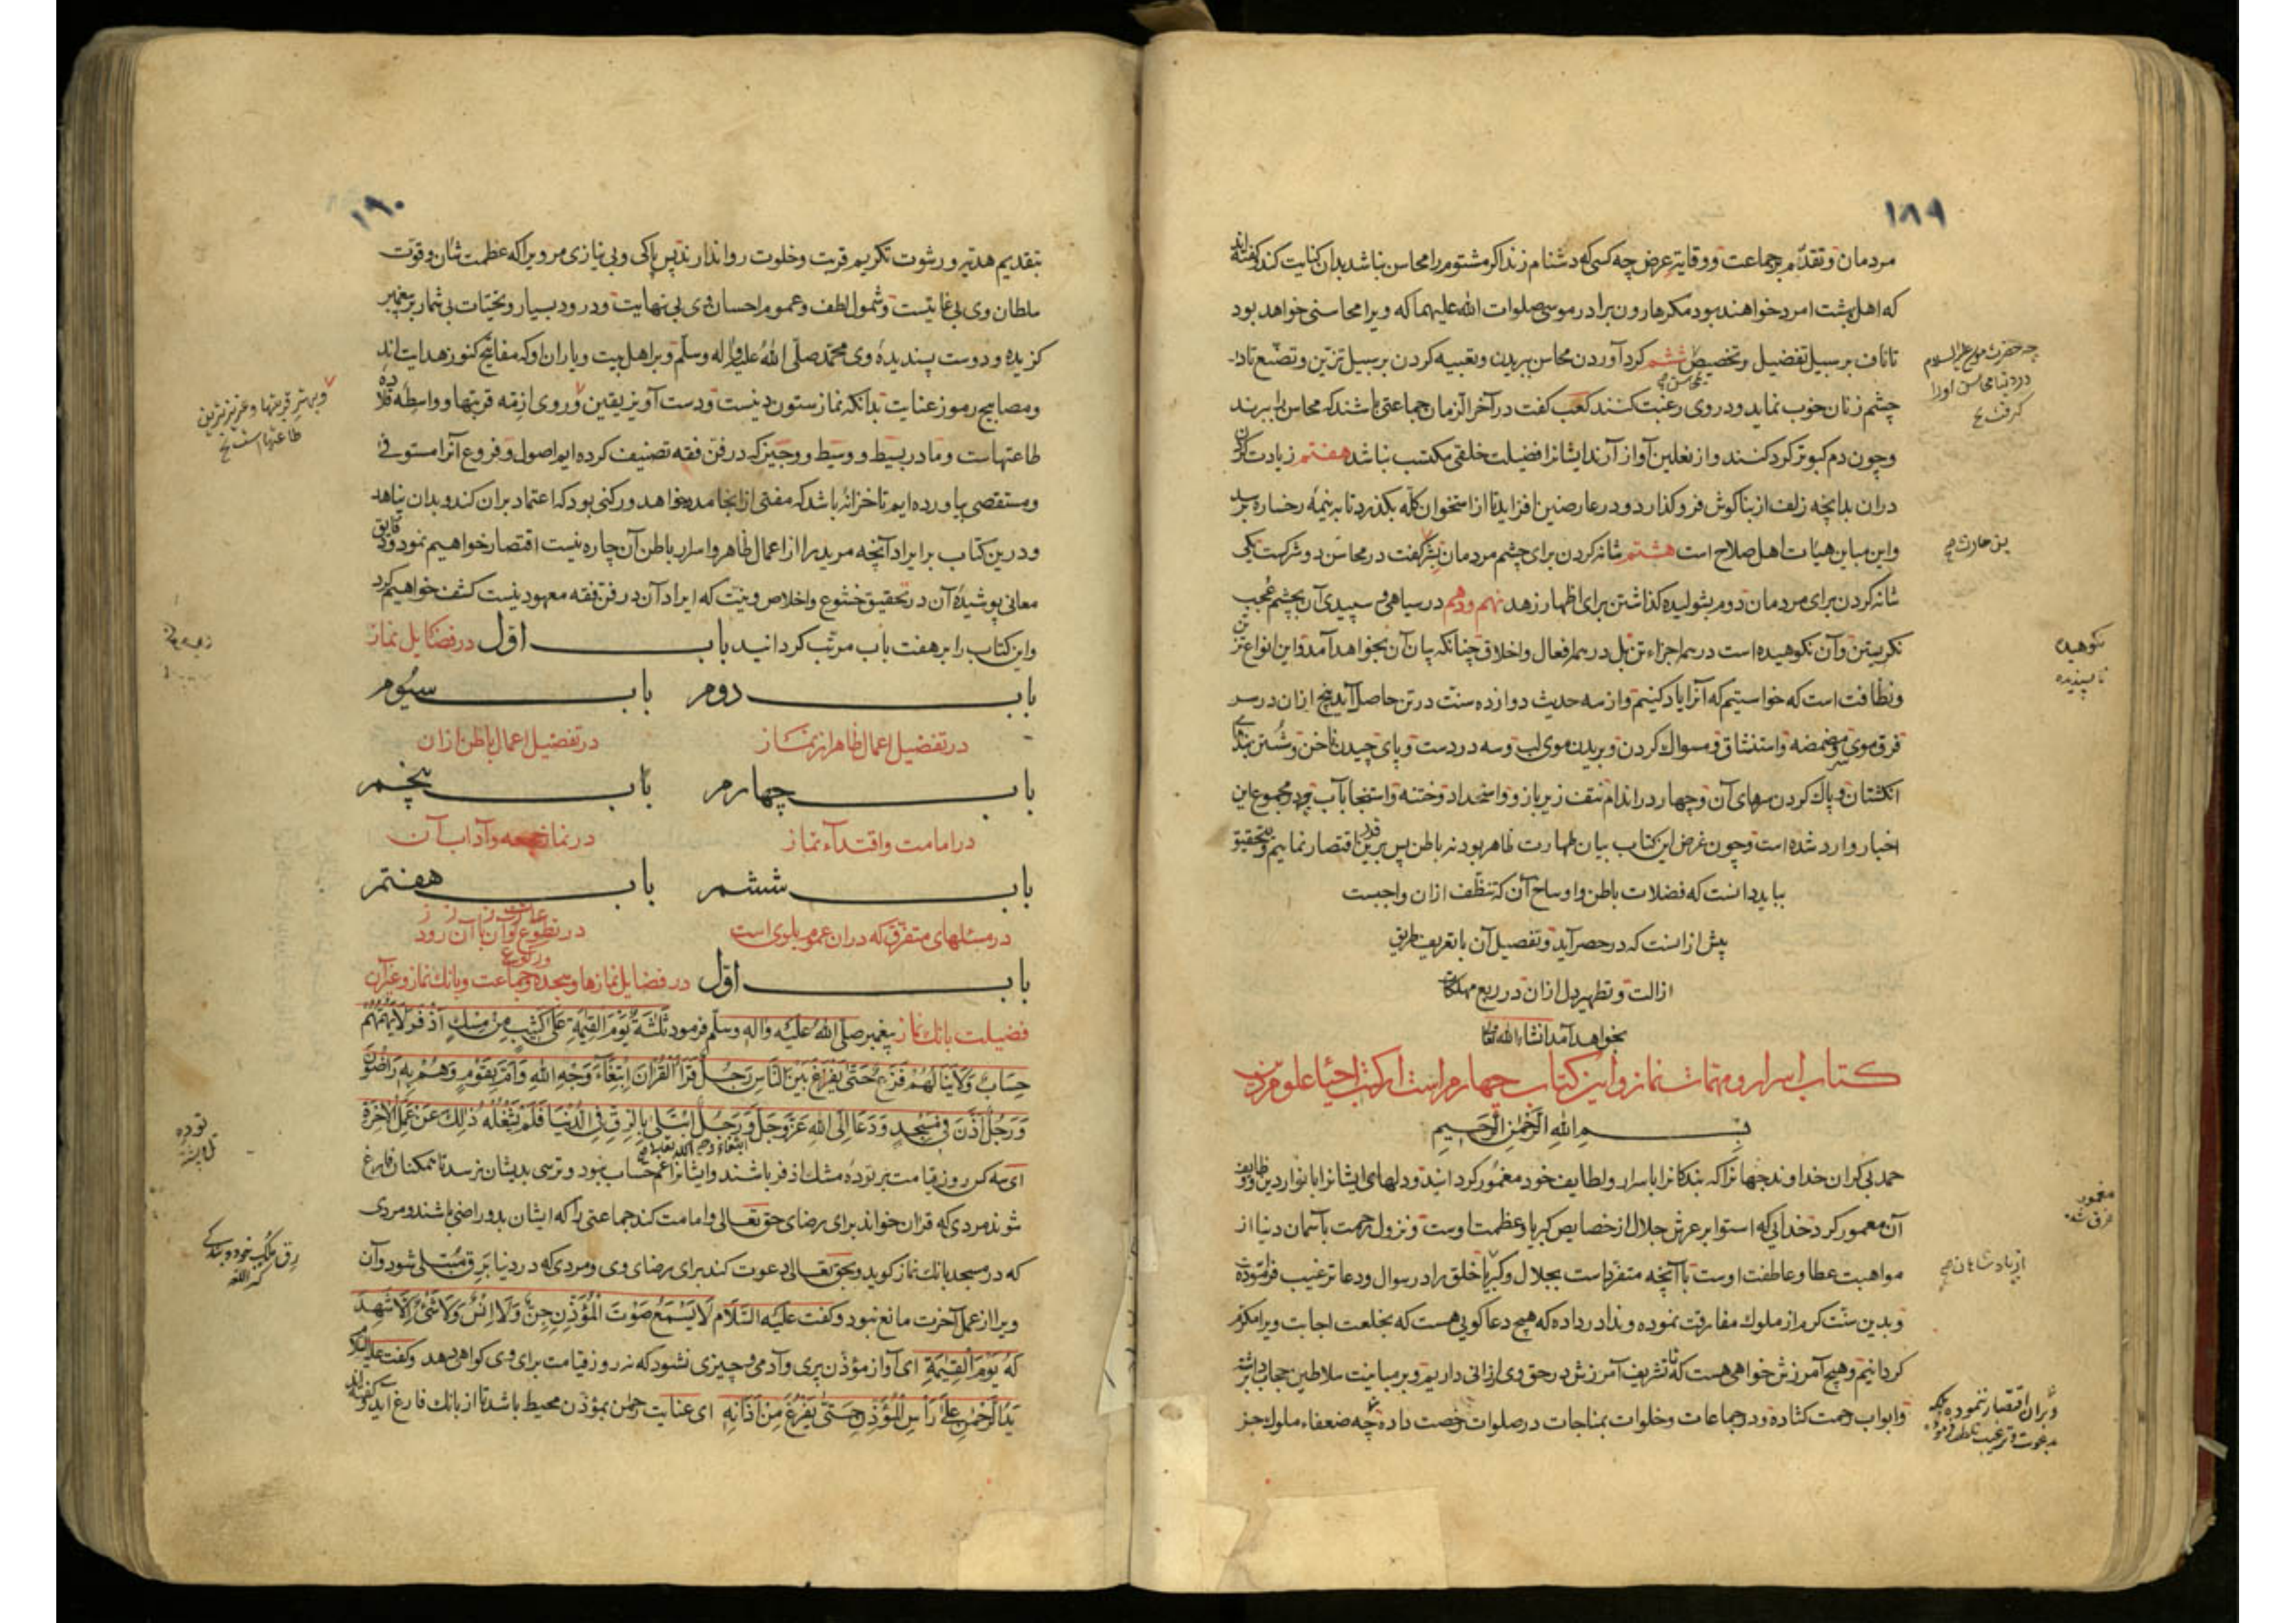 ۱۸۹
مردمان و تقدّم بر جماعت و وقایهٔ عرض چه کسی که دشنام زند اکر مشتوم را محاسن نباشد بدان کنایت کند و کفته اند
که اهل بهشت امرد خواهند بود مکر هارون برادر موسی صلوات الله علیهما که ویرا محاسنی خواهد بود
تا ناف بر سبیل تفضیل و تخصیص ششم کرد آوردن محاسن ببریدن و تعبیه کردن بر سبیل تزیّن و تصنّع تا در
چشم زنان خوب نماید و در وی رغبت کنند کعب کفت در آخر الزمان جماعتی باشند که محاسن را ببرند
و چون دم کبوتر کرد کنند و از نعلین آواز آرند ایشانرا فضیلت خلقی مکتسب نباشد هفتم زیادت کردن
دران بدانچه زلف از بناکوش فرو کذارد و در عارضین افزاید تا از استخوان کلّه بکذرد تا به نیمهٔ رخساره برسد
و این مباین هیئات اهل صلاح است هشتم شانه کردن برای چشم مردمان بشر کفت در محاسن دو شرکست یکی
شانه کردن برای مردمان دوم بشولیده کذاشتن برای اظهار زهد نهم و دهم در سیاهی و سپیدی آن بچشم عُجب
نکریستن و آن نکوهیده است در همه اجزاء تن بل در همه افعال و اخلاق چنانکه بیان آن بخواهد آمد و این انواع تزیّن
و نظافت است که خواستیم که آنرا یاد کنیم و از سه حدیث دوازده سنّت در تن حاصل آید پنج ازان در سر
فرق موی سر و مضمضه و استنشاق و مسواک کردن و بریدن موی لب و سه در دست و پای چیدن ناخن و شستن بندکاه
انکشتان و پاک کردن سرهای آن و چهار در اندام نتف زیر بازو و استحداد و ختنه و استنجا بآب و مجموع این
اخبار وارد شده است و چون غرض این کتاب بیان طهارت ظاهر بود نه باطن پس برین قدر اقتصار نماییم و بتحقیق
بباید دانست که فضلات باطن و اوساخ آن که تنظّف ازان واجبست
بیش ازانست که در حصر آید و تفصیل آن با تعریف طریق
ازالت و تطهیر دل ازان در ربع مهلکات
بخواهد آمد انشاء الله تعالی
کتاب اسرار و مهمّات نماز و این کتاب چهارم است از کتب احیاء علوم دین
بسم الله الرّحمن الرّحیم
حمد بی کران خداوند جهانرا که بندکانرا باسرار و لطایف خود مغمور کردانید و دلهای ایشانرا بانوار دین و وظایف
آن معمور کرد خدایی که استوا بر عرش جلال از خصایص کبریا و عظمت اوست و نزول رحمت بآسمان دنیا از
مواهبت عطا و عاطفت اوست باآنچه متفرّداست بجلال و کبریا خلق را در سوال و دعا ترغیب فرموده
و بدین سنّت کرم از ملوک مفارقت نموده و ندا در داده که هیچ دعا کویی هست که بخلعت اجابت ویرا مکرّم
کردانیم و هیچ آمرزش خواهی هست که تا تشریف آمرزش در حق وی ارزانی داریم و بر مباینت سلاطین حجاب برداشته
و ابواب رحمت کشاده و در جماعات و خلوات بمناجات در صلوات رخصت داده چه ضعفاء ملوک جز
چه حضرت موسی علیه السلام
در دنیا محاسن اورا
کرفت
بن حارث
نکوهیده
ناپسندیده
مغمور
غرق شده
از پادشاهان
و بران اقتصار ننموده بلکه
بدعوت و ترغیب تلطف فرموده
۱۹۰
بتقدیم هدیّه و رشوت تکریم قربت و خلوت روا ندارند پس پاکی و بی نیازی مر ویرا که عظمت شان و قوّت
سلطان وی بی غایتست و شمول لطف و عموم احسان وی بی نهایت و درود بسیار و تحیّات بی شمار بر پیغمبر
کزیده و دوست پسندیدهٔ وی محمّد صلّی الله علیه و اله و سلّم و بر اهل بیت و یاران او که مفاتیح کنوز هدایت اند
و مصابیح رموز عنایت بدانکه نماز ستون دینست و دست آویز یقین و روی ازمّه قربتها و واسطه قلاده
طاعتهاست و ما در بسیط و وسیط و وجیز که در فنّ فقه تصنیف کرده ایم اصول و فروع آنرا مستوفی
و مستقصی بیاورده ایم تا خزانهٔ باشد که مفتی ازانجا مدد خواهد و رکنی بود که اعتماد بران کند و بدان پناهد
و درین کتاب بر ایراد آنچه مرید را از اعمال ظاهر و اسرار باطن آن چاره نیست اقتصار خواهیم نمود و دقایق
معانی پوشیدهٔ آن در تحقیق خشوع و اخلاص و نیّت که ایراد آن در فن فقه معهود نیست کشف خواهیم کرد
و این کتاب را بر هفت باب مرتّب کردانیدیم باب اوّل در فضایل نماز
باب دوم باب سیُوم
در تفصیل اعمال ظاهر از نماز در تفصیل اعمال باطن ازان
باب چهارم باب پنجم
در امامت و اقتداء نماز در نماز جمعه و آداب آن
باب ششم باب هفتم
در مسئلهای متفرّق که دران عموم بلوی است در تطوّع و آن باآن رود
باب اوّل در فضایل نمازها و سجده و جماعت و بانک نماز و غیر آن
فضیلت بانک نماز پیغمبر صلّی الله علیه و اله و سلّم فرمود ثَلٰثَةٌ یَوْمَ الْقِیٰمَةِ عَلیٰ کَثِیْبٍ مِنْ مِسْکٍ اَذْفَرَ لَا یَهُمُّهُمْ
حِسَابٌ وَلَا یَنَالُهُمْ فَزَعٌ حَتّیٰ یُفْرَغَ بَیْنَ النَّاسِ رَجُلٌ قَرَأَ الْقُرْاٰنَ اِبْتِغَاءَ وَجْهِ اللهِ وَاَمَّ بِقَوْمٍ وَهُمْ بِهِ رَاضُوْنَ
وَرَجُلٌ اَذَّنَ فِیْ مَسْجِدٍ وَدَعَا اِلَی اللهِ عَزَّ وَجَلَّ وَرَجُلٌ ابْتُلِیَ بِالرِّقِّ فِی الدُّنْیَا فَلَمْ یَشْغَلْهُ ذٰلِکَ عَنْ عَمَلِ الْاٰخِرَةِ
ای سه کس روز قیامت بر تودهٔ مشک اذفر باشند و ایشانرا غم حساب نبود و ترسی بدیشان نرسد تا همکنان فارغ
شوند مردی که قران خواند برای رضای حق تعالی و امامت کند جماعتی را که ایشان بدو راضی باشند و مردی
که در مسجد بانک نماز کوید و بحق تعالی دعوت کند برای رضای وی و مردی که در دنیا بَرِقّ مُبتلی شود و آن
ویرا از عمل آخرت مانع نبود و کفت علیه السّلام لَا یَسْمَعُ صَوْتَ الْمُؤَذِّنِ جِنٌّ وَلَا اِنْسٌ وَلَا شَیْءٌ اِلَّا شَهِدَ
لَهُ یَوْمَ الْقِیٰمَةِ ای آواز مؤذّن پری و آدمی و چیزی نشنود که نه روز قیامت برای وی کواهی دهد و کفت علیه السلام
یَدُ الرَّحْمٰنِ عَلیٰ رَأْسِ الْمُؤَذِّنِ حَتّیٰ یَفْرُغَ مِنْ اَذَانِهِ ای عنایت رحمن بمؤذّن محیط باشد تا از بانک فارغ آید و کفته اند
و بهتر قربتها و عزیزترین
طاعتهاست
توده
تل و پشته